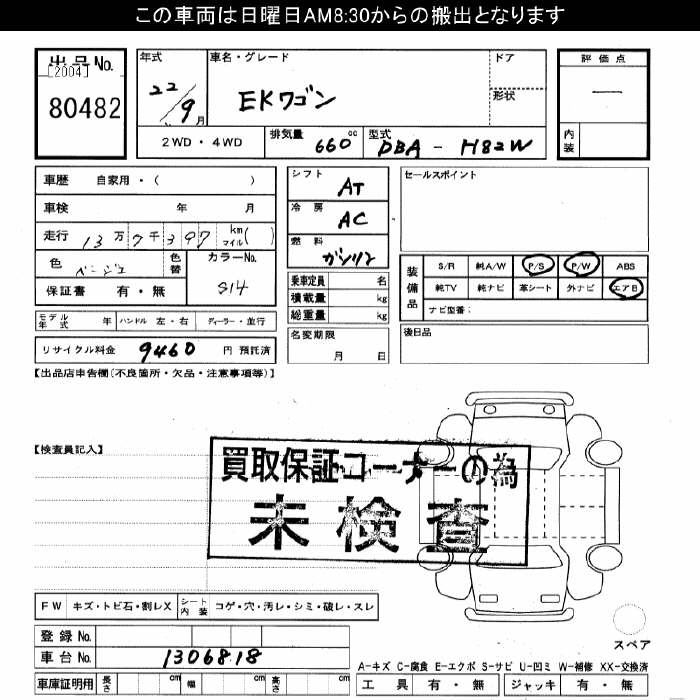 この車両は日曜日AM8:30からの搬出となります
出品No.
[2004]
80482
年式
22/9月
車名・グレード
EKワゴン
ドア
形状
2WD・4WD
排気量 660cc
型式 DBA - H82W
評価点
—
内装
車歴 自家用・( )
車検 年 月
走行 13万7千397 km マイル( )
色 ベージュ 色替
カラーNo. S14
保証書 有・無
シフト AT
冷房 AC
燃料 ガソリン
乗車定員 名
積載量 kg
総重量 kg
セールスポイント
装備品
S/R 純A/W P/S P/W ABS
純TV 純ナビ 革シート 外ナビ エアB
ナビ型番:
モデル年式 年 ハンドル 左・右 ディーラー・並行
名変期限 月 日
後日品
リサイクル料金 9460 円 預託済
【出品店申告欄(不良箇所・欠品・注意事項等)】
【検査員記入】
買取保証コーナーの為
未検査
FW キズ・トビ石・割レX シート内装 コゲ・穴・汚レ・シミ・破レ・スレ
登録No.
車台No. 1306818
車庫証明用 長さ cm 幅 cm 高さ cm
スペア
A-キズ C-腐食 E-エクボ S-サビ U-凹ミ W-補修 XX-交換済
工具 有・無 ジャッキ 有・無